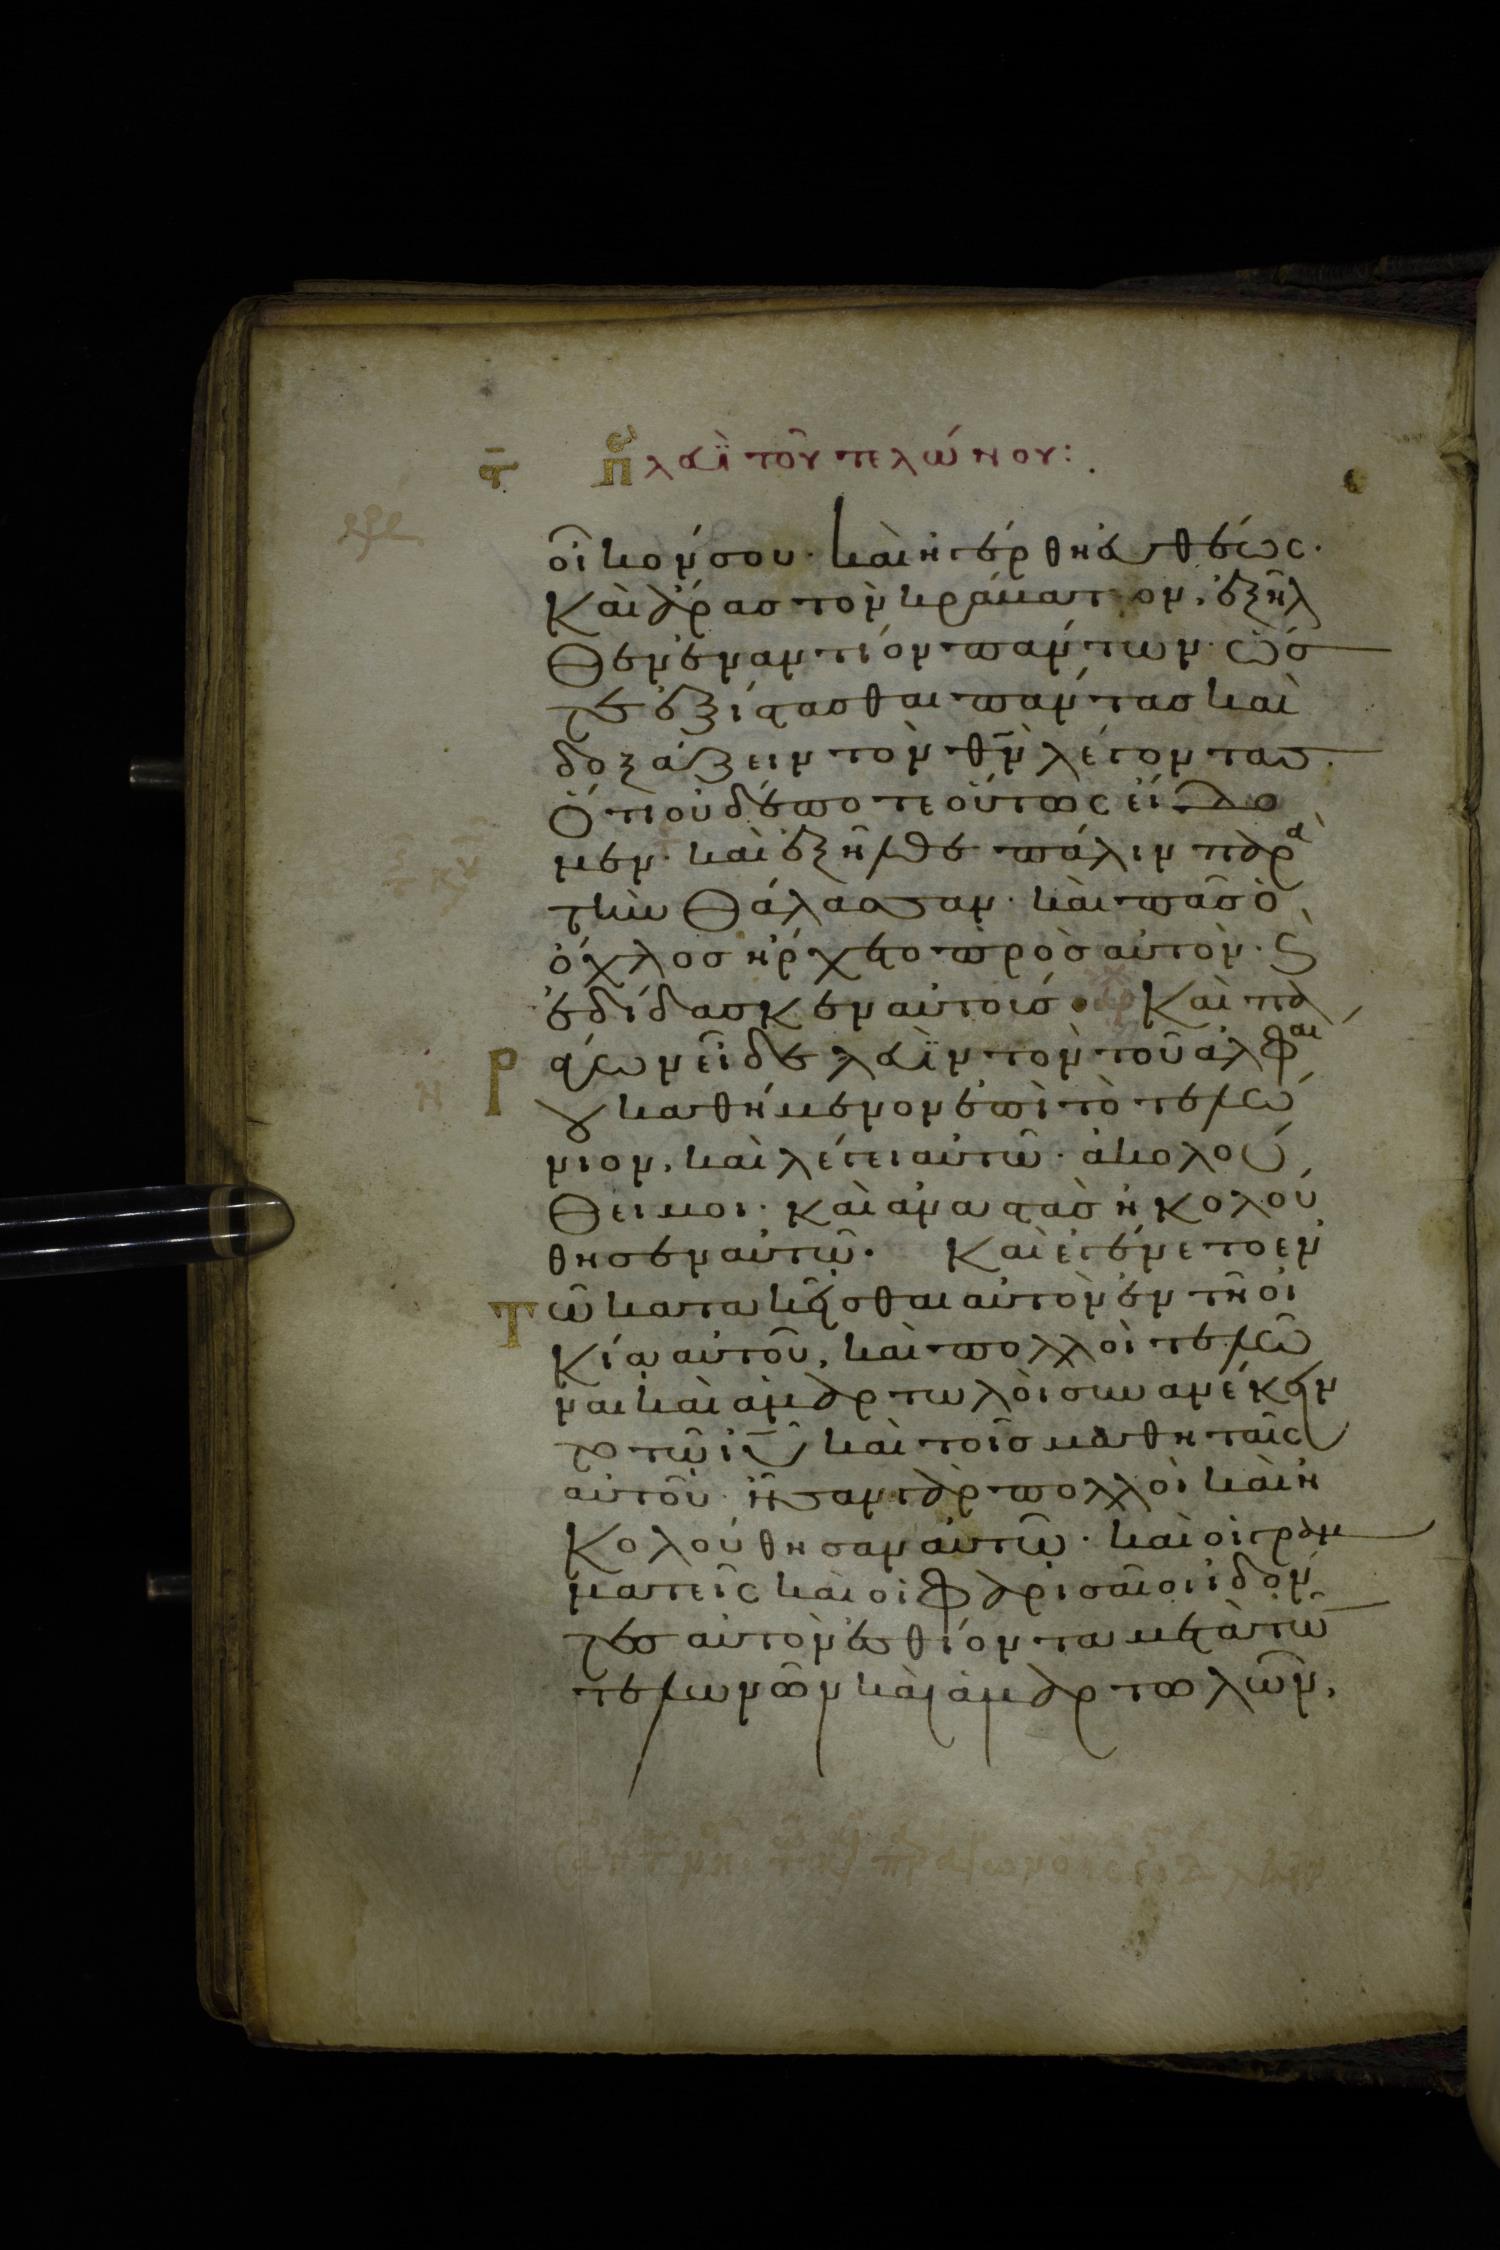 ϛ̄ Περὶ λευῒ τοῦ τελώνου:
οἶκόν σου· καὶ ἠγέρθη εὐθέως·
Καὶ ἄρας τὸν κράματτον, ἐξῆλ
θεν ἐναντίον πάντων· ὥσ
τε ἐξίστασθαι πάντας καὶ
δοξάζειν τὸν θ̅ν̅ λέγοντας·
Ὅτι οὐδέποτε οὕτως εἴδο
μεν· καὶ ἐξῆλθε πάλιν παρὰ
τὴν θάλασσαν· καὶ πᾶς ὁ
ὄχλος ἤρχετο πρὸς αὐτὸν· ϗ
ἐδίδασκεν αὐτούς· Καὶ πα
ράγων εἶδε λευῒν τὸν τοῦ ἀλφαί
ου καθήμενον ἐπὶ τὸ τελώ
νιον, καὶ λέγει αὐτῶ· ἀκολού
θει μοι· καὶ ἀναστὰς ἠκολού
θησεν αὐτῶ· Καὶ ἐγένετο ἐν
τῶ κατακεῖσθαι αὐτὸν ἐν τῆ οἰ
κία αὐτοῦ, καὶ πολλοὶ τελῶ
ναι καὶ ἁμαρτωλοὶ συνανέκειν
το τῶ ι̅υ̅ καὶ τοῖς μαθηταῖς
αὐτοῦ· ἦσαν γὰρ πολλοὶ καὶ ἠ
κολούθησαν αὐτῶ· καὶ οἱ γραμ
ματεῖς καὶ οἱ φαρισαῖοι ἰδόν
τες αὐτὸν ἐσθίοντα μετὰ τῶν
τελωνῶν καὶ ἁμαρτωλῶν,